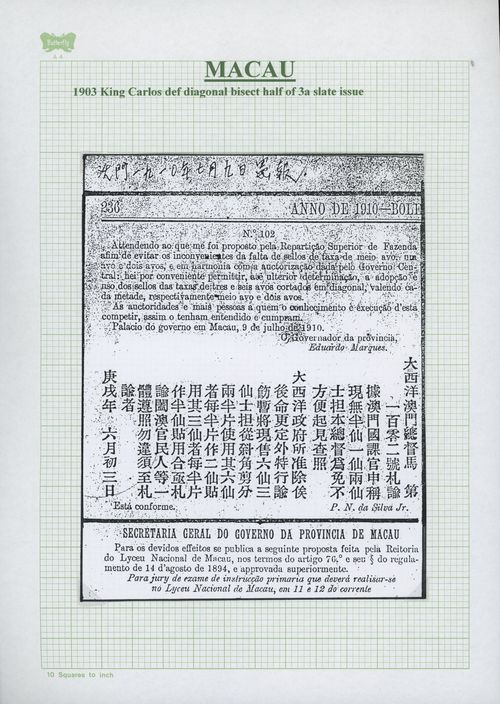 Butterfly
A 4
MACAU
1903 King Carlos def diagonal bisect half of 3a slate issue
澳門一九一〇年七月九日憲報
236 ANNO DE 1910—BOLE
N.º 102
Attendendo ao que me foi proposto pela Repartição Superior de Fazenda
afim de evitar os inconvenientes da falta de sellos de taxa de meio avo, um
avo e dois avos, e em harmonia com a auctorização dada pelo Governo Cen-
tral: hei por conveniente permittir, até ulterior determinação, a adopção e
uso dos sellos das taxas de tres e seis avos cortados em diagonal, valendo ca-
da metade, respectivamente meio avo e dois avos.
As auctoridades e mais pessoas a quem o conhecimento e execução d'esta
competir, assim o tenham entendido e cumpram.
Palacio do governo em Macau, 9 de julho de 1910.
O Governador da provincia,
Eduardo Marques.
大西洋澳門總督馬 第
一百零二號札諭
據澳門國課官申稱
現無半仙一仙兩仙
士担本總督爲免不
方便起見查照
大西洋政府所准除俟
後命更定外特行諭
飭暫將現售六仙三
仙士担從斜角剪分
兩半片使用其六仙
者每半片作二仙貼
用其三仙者每半片
作半仙貼用合亟札
諭闔澳官民人等一
體遵照勿違須至札
諭者
庚戌年 六月初三日
Está conforme. P. N. da Silva Jr.
SECRETARIA GERAL DO GOVERNO DA PROVINCIA DE MACAU
Para os devidos effeitos se publica a seguinte proposta feita pela Reitoria
do Lyceu Nacional de Macau, nos termos do artigo 76,º e seu § do regula-
mento de 14 d'agosto de 1894, e approvada superiormente.
Para jury de exame de instrucção primaria que deverá realisar-se
no Lyceu Nacional de Macau, em 11 e 12 do corrente
10 Squares to inch